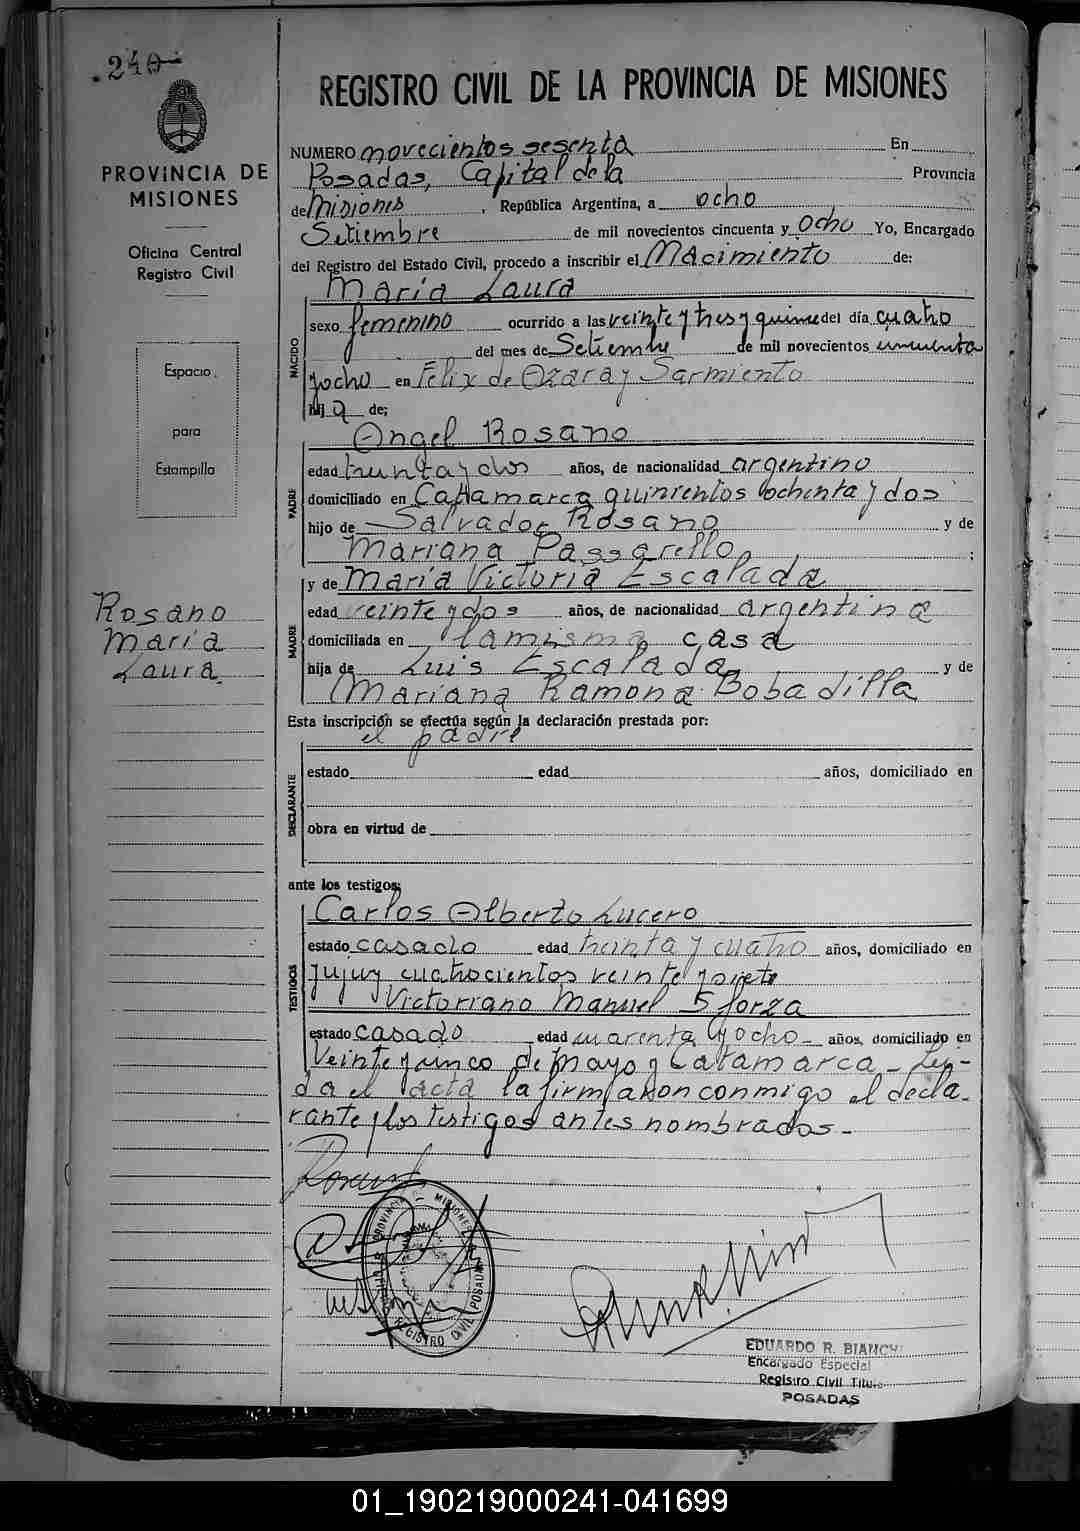 240
PROVINCIA DE
MISIONES
Oficina Central
Registro Civil
Espacio
para
Estampilla
Rosano
María
Laura
REGISTRO CIVIL DE LA PROVINCIA DE MISIONES
NUMERO novecientos sesenta En
Posadas, Capital de la Provincia
de Misiones, República Argentina, a ocho
Setiembre de mil novecientos cincuenta y ocho Yo, Encargado
del Registro del Estado Civil, procedo a inscribir el Nacimiento de:
NACIDO
María Laura
sexo femenino ocurrido a las veinte y tres y quince del día cuatro
del mes de Setiembre de mil novecientos cincuenta
y ocho en Felix de Azara y Sarmiento
hij a de;
PADRE
Angel Rosano
edad treinta y dos años, de nacionalidad argentino
domiciliado en Catamarca quinientos ochenta y dos
hijo de Salvador Rosano y de
Mariana Passarello ;
MADRE
y de María Victoria Escalada
edad veinte y dos años, de nacionalidad argentina
domiciliada en la misma casa
hija de Luis Escalada y de
Mariana Ramona Bobadilla
Esta inscripción se efectúa según la declaración prestada por:
el padre
DECLARANTE
estado edad años, domiciliado en
obra en virtud de
ante los testigos;
TESTIGOS
Carlos Alberto Lucero
estado casado edad treinta y cuatro años, domiciliado en
Jujuy cuatrocientos veinte y siete
Victoriano Manuel Sforza
estado casado edad cuarenta y ocho años, domiciliado en
Veinte y cinco de Mayo y Catamarca - Leí-
da el acta la firmaron conmigo el decla-
rante y los testigos antes nombrados.-
PROVINCIA MISIONES
REGISTRO CIVIL POSADAS
EDUARDO R. BIANCHI
Encargado Especial
Registro Civil Titul
POSADAS
01_190219000241-041699